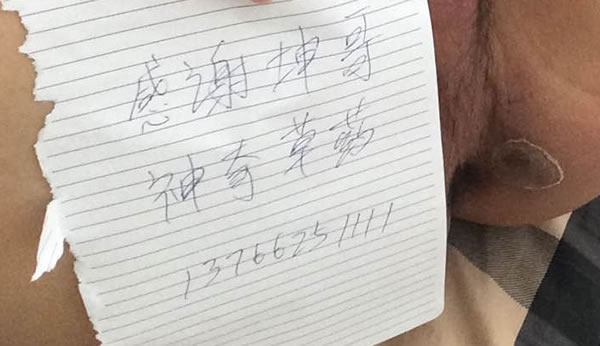 感谢坤哥
神奇草药
13766251111